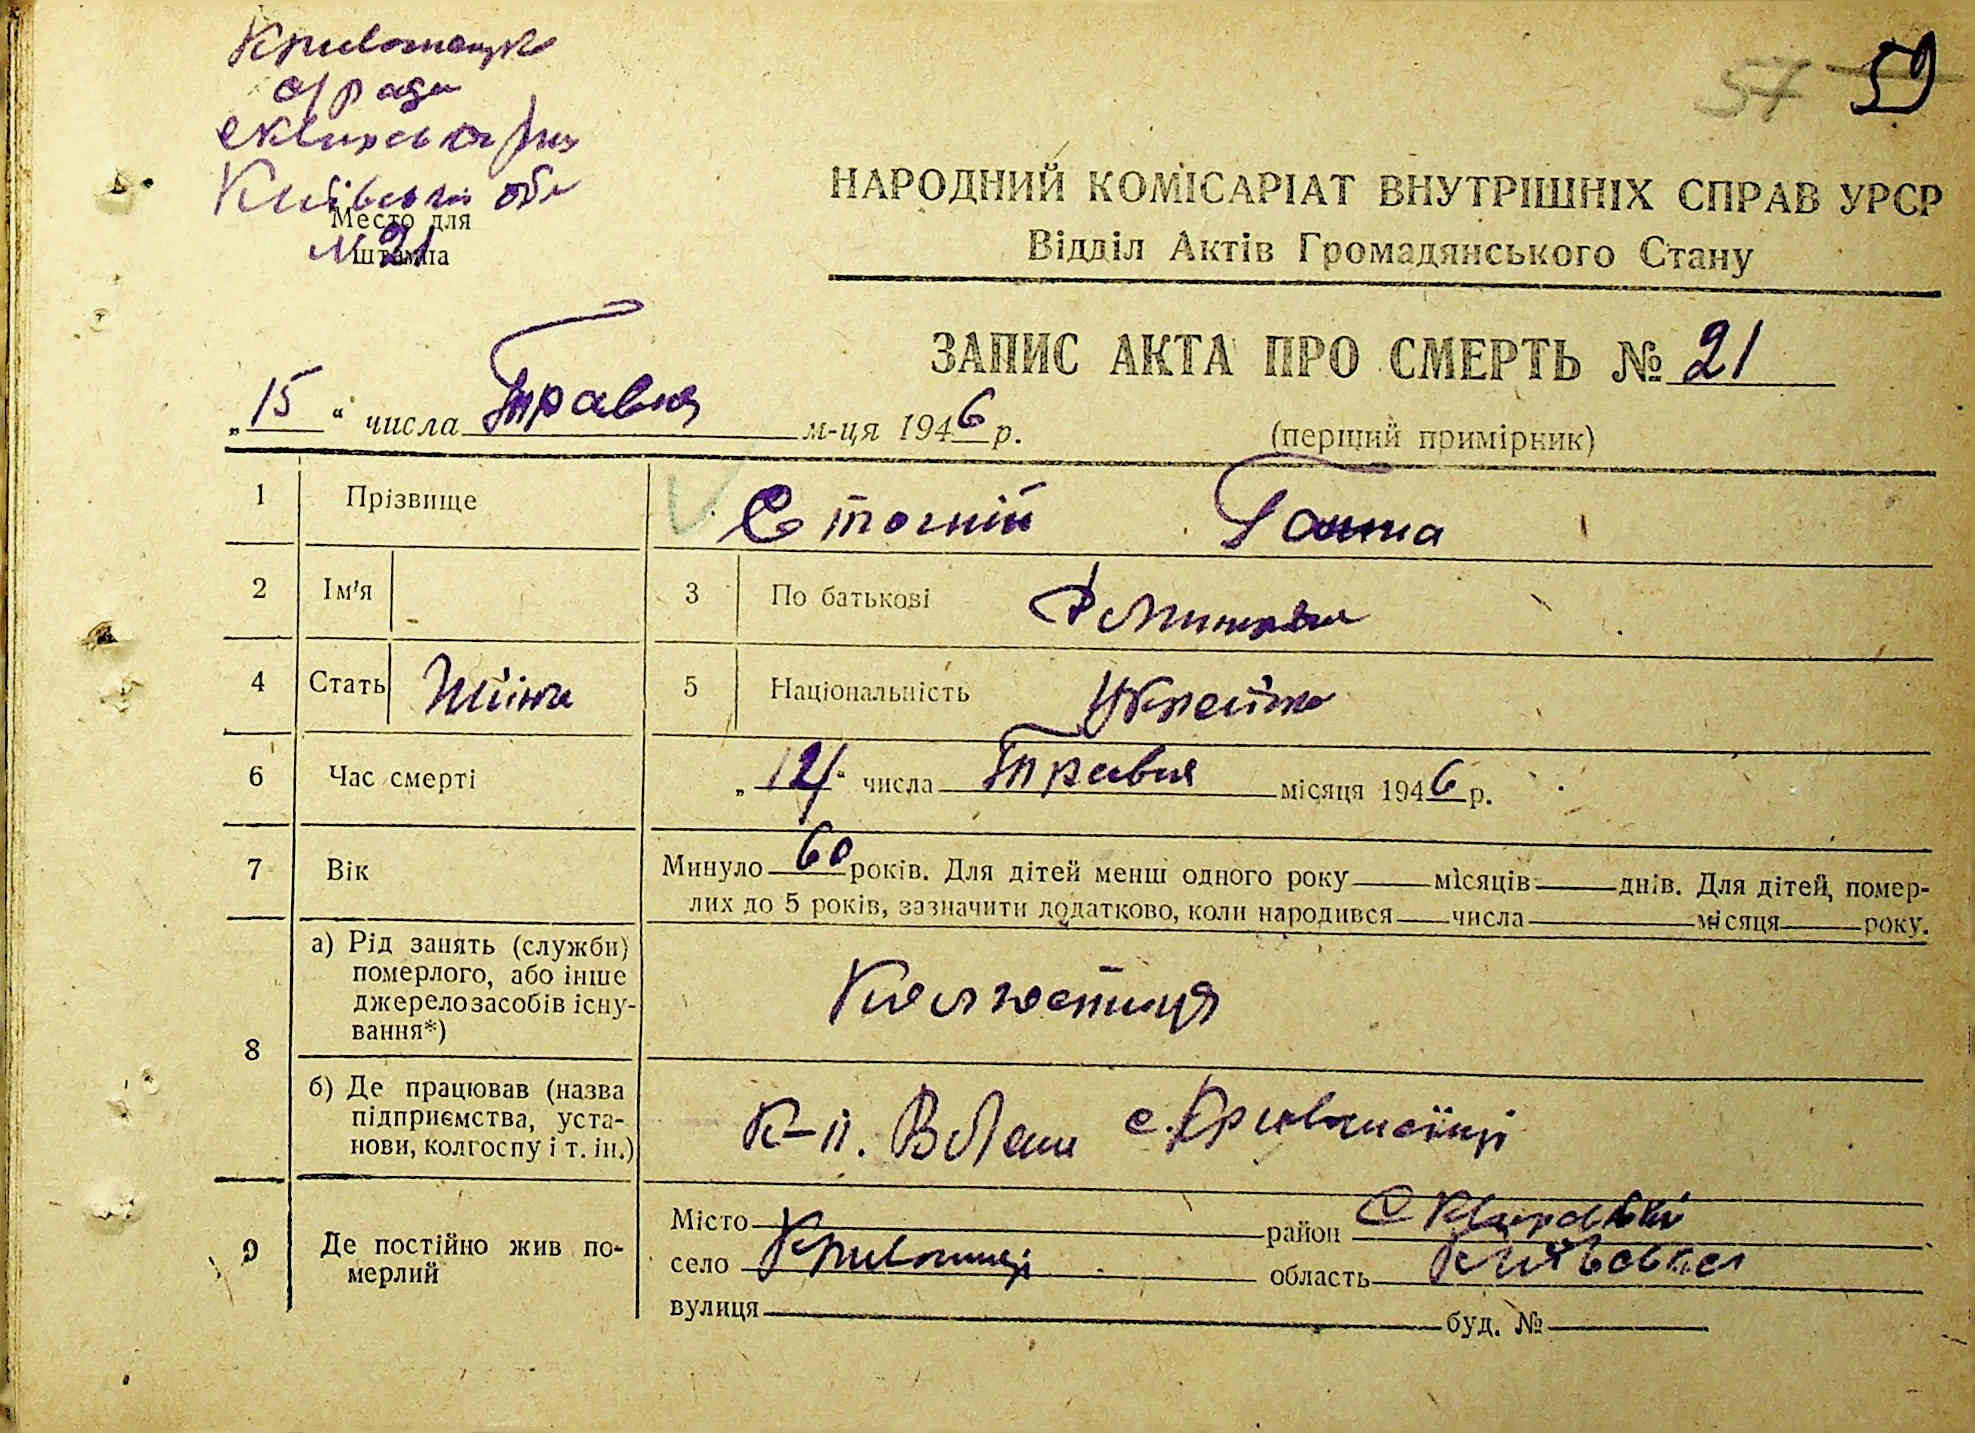 57 59
с/рада
Сквирського р-ну
Київської обл
Место для
штампа
№ 21
НАРОДНИЙ КОМІСАРІАТ ВНУТРІШНІХ СПРАВ УРСР
Відділ Актів Громадянського Стану
ЗАПИС АКТА ПРО СМЕРТЬ № 21
„15“ числа Травня м-ця 1946 р.
(перший примірник)
1 Прізвище Стогній Ганна
2 Ім'я 3 По батькові
4 Стать Жіноча 5 Національність Українка
6 Час смерті „12“ числа Травня місяця 1946 р.
7 Вік Минуло 60 років. Для дітей менш одного року місяців днів. Для дітей, помер-
лих до 5 років, зазначити додатково, коли народився числа місяця року.
8 а) Рід занять (служби)
померлого, або інше
джерело засобів існу-
вання*)
Колгоспниця
б) Де працював (назва
підприємства, уста-
нови, колгоспу і т. ін.)
К-п. с. Кривошиїнці
9 Де постійно жив по-
мерлий
Місто район Сквирський
село Кривошиїнці область Київська
вулиця буд. №